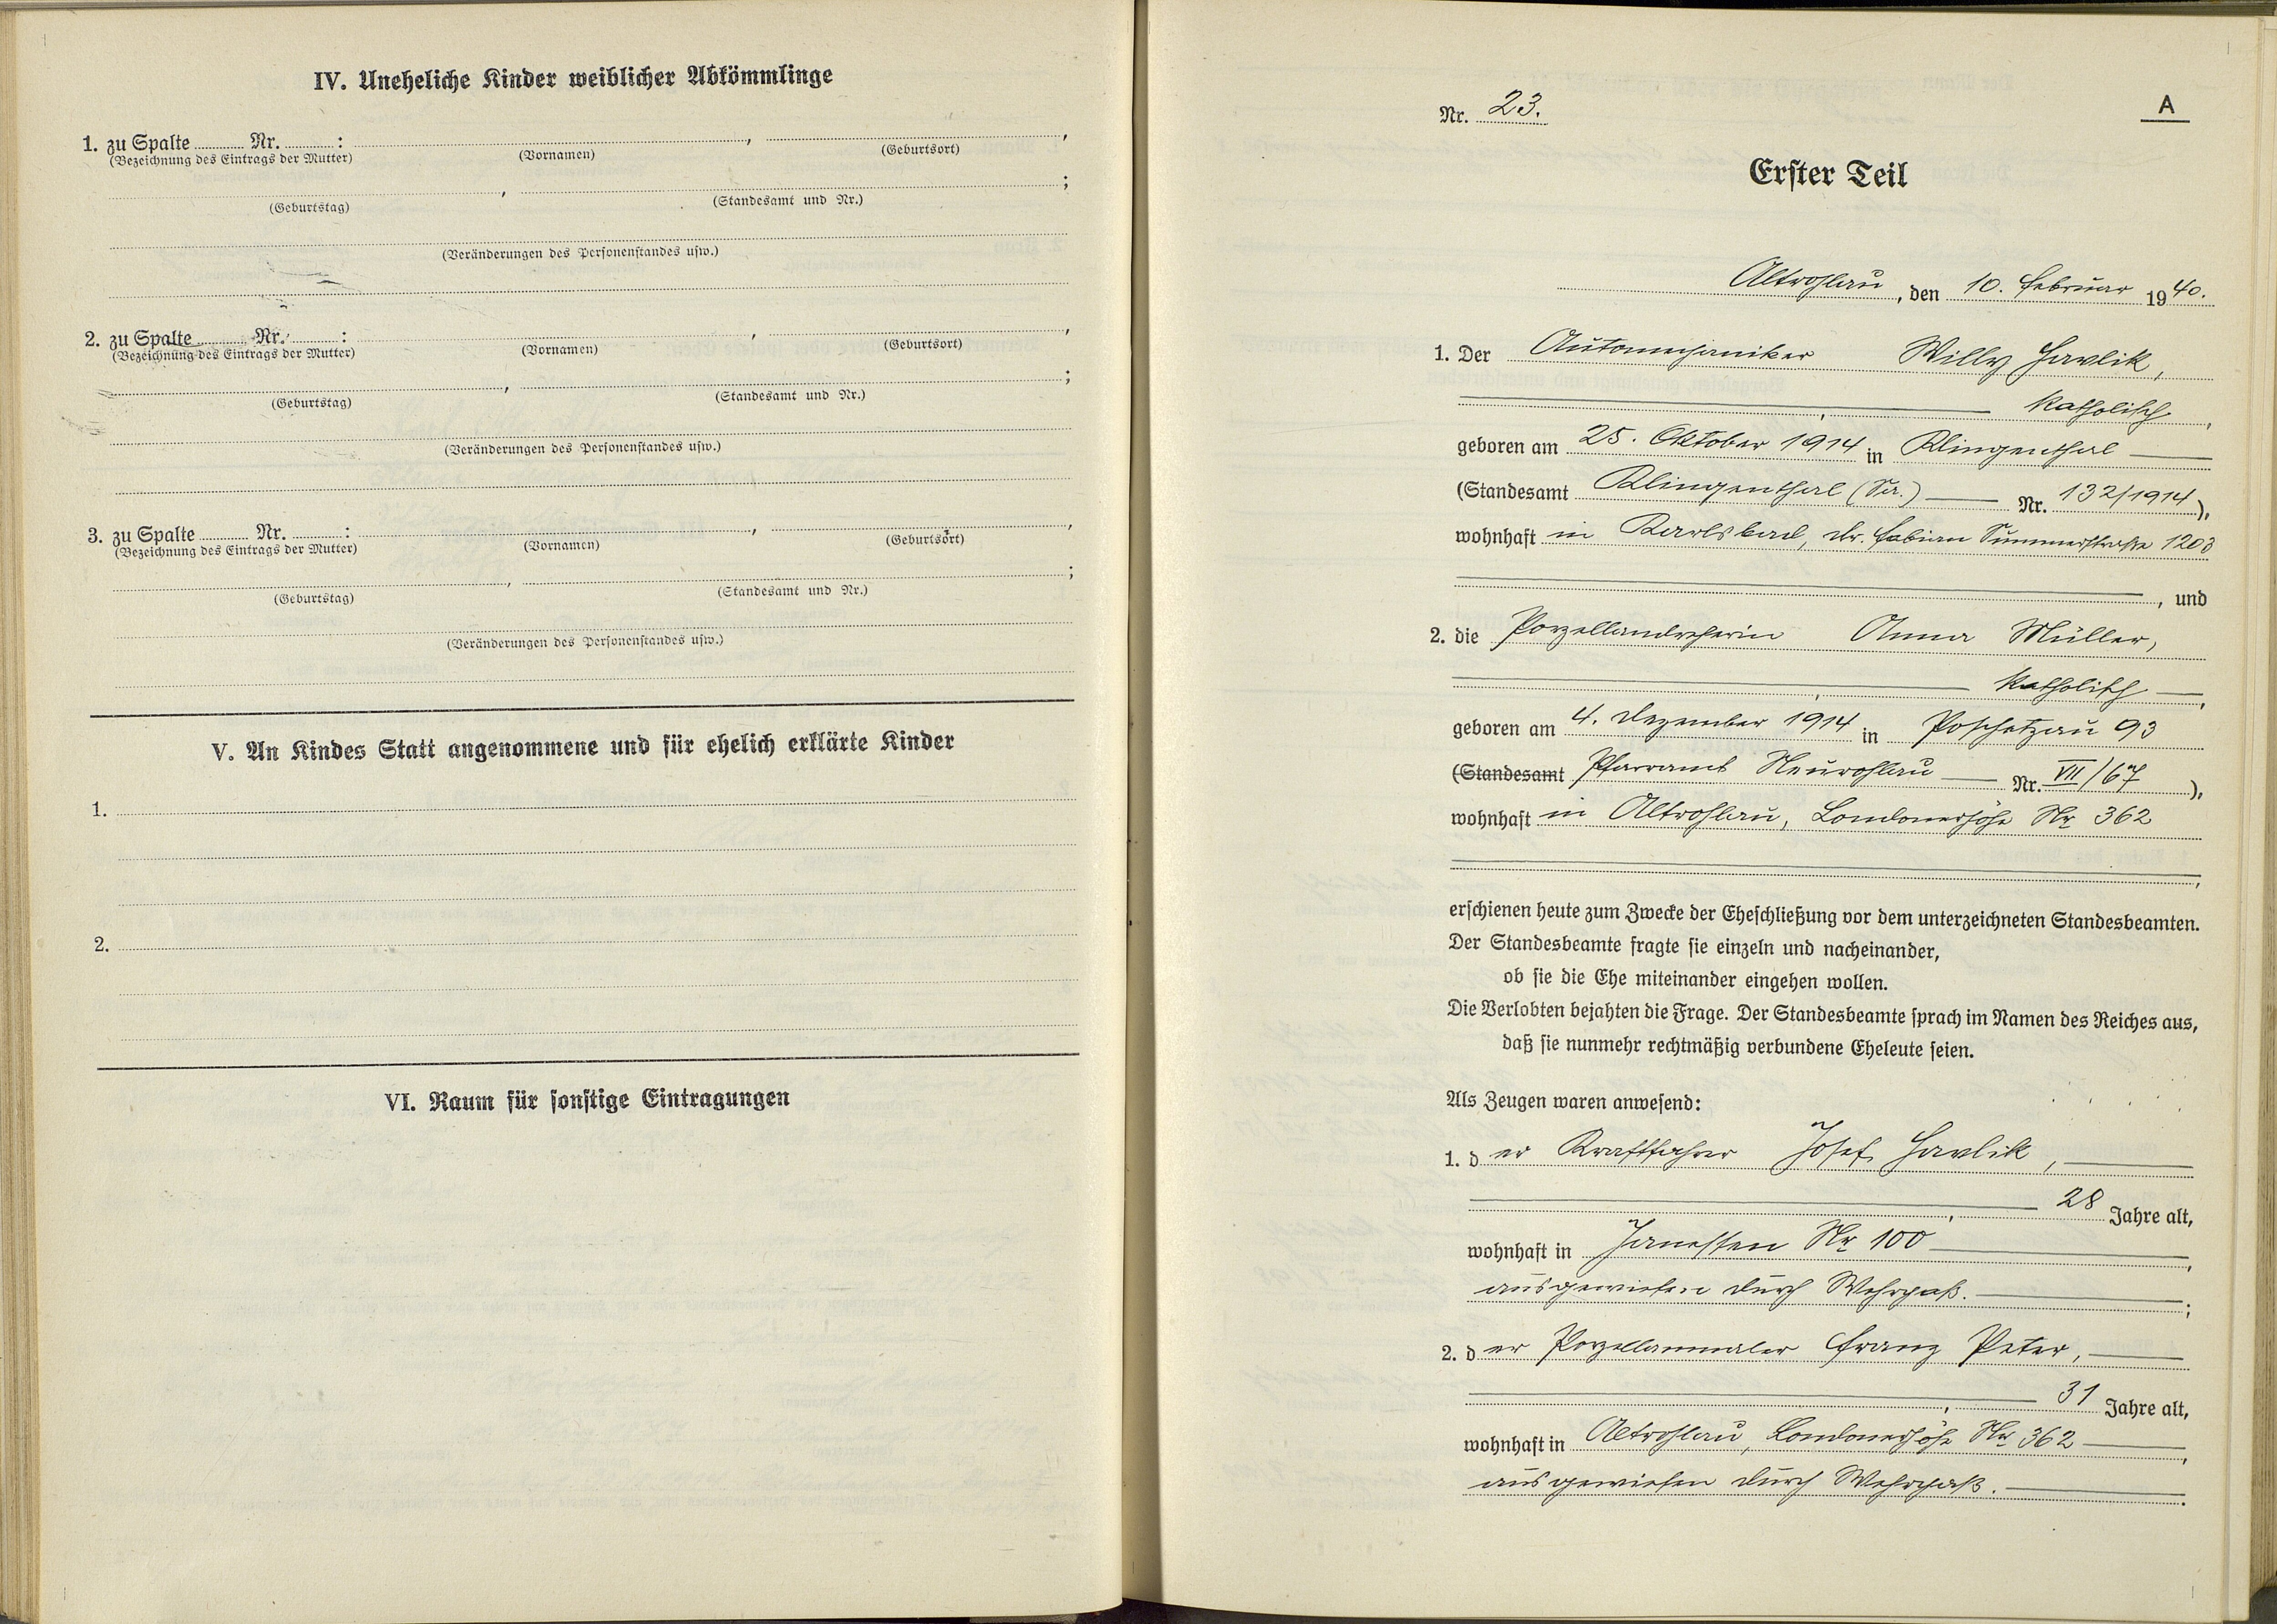 IV. Uneheliche Kinder weiblicher Abkömmlinge
1. zu Spalte Nr. : , ,
(Bezeichnung des Eintrags der Mutter) (Vornamen) (Geburtsort)
, ;
(Geburtstag) (Standesamt und Nr.)
(Veränderungen des Personenstandes usw.)
2. zu Spalte Nr. : , ,
(Bezeichnung des Eintrags der Mutter) (Vornamen) (Geburtsort)
, ;
(Geburtstag) (Standesamt und Nr.)
(Veränderungen des Personenstandes usw.)
3. zu Spalte Nr. : , ,
(Bezeichnung des Eintrags der Mutter) (Vornamen) (Geburtsort)
, ;
(Geburtstag) (Standesamt und Nr.)
(Veränderungen des Personenstandes usw.)
V. An Kindes Statt angenommene und für ehelich erklärte Kinder
1.
2.
VI. Raum für sonstige Eintragungen
Nr. 23.
A
Erster Teil
Altrohlau, den 10. Februar 1940.
1. Der Automechaniker Willy Havlik,
, katholisch,
geboren am 25. Oktober 1914 in Klingenthal
(Standesamt Klingenthal (Sa.) Nr. 132/1914),
wohnhaft in Karlsbad, Dr. Fabian Summerstraße 1203
, und
2. die Porzellandreherin Anna Müller,
, katholisch,
geboren am 4. Dezember 1914 in Poschetzau 93
(Standesamt Pfarramt Neurohlau Nr. VII/67),
wohnhaft in Altrohlau, Londonerhöhe Nr 362
,
erschienen heute zum Zwecke der Eheschließung vor dem unterzeichneten Standesbeamten.
Der Standesbeamte fragte sie einzeln und nacheinander,
ob sie die Ehe miteinander eingehen wollen.
Die Verlobten bejahten die Frage. Der Standesbeamte sprach im Namen des Reiches aus,
daß sie nunmehr rechtmäßig verbundene Eheleute seien.
Als Zeugen waren anwesend:
1. der Kraftfahrer Josef Havlik,
, 28 Jahre alt,
wohnhaft in Janessen Nr 100,
ausgewiesen durch Wehrpaß. ;
2. der Porzellanmaler Franz Peter,
, 31 Jahre alt,
wohnhaft in Altrohlau, Londonerhöhe Nr 362,
ausgewiesen durch Wehrpaß. .